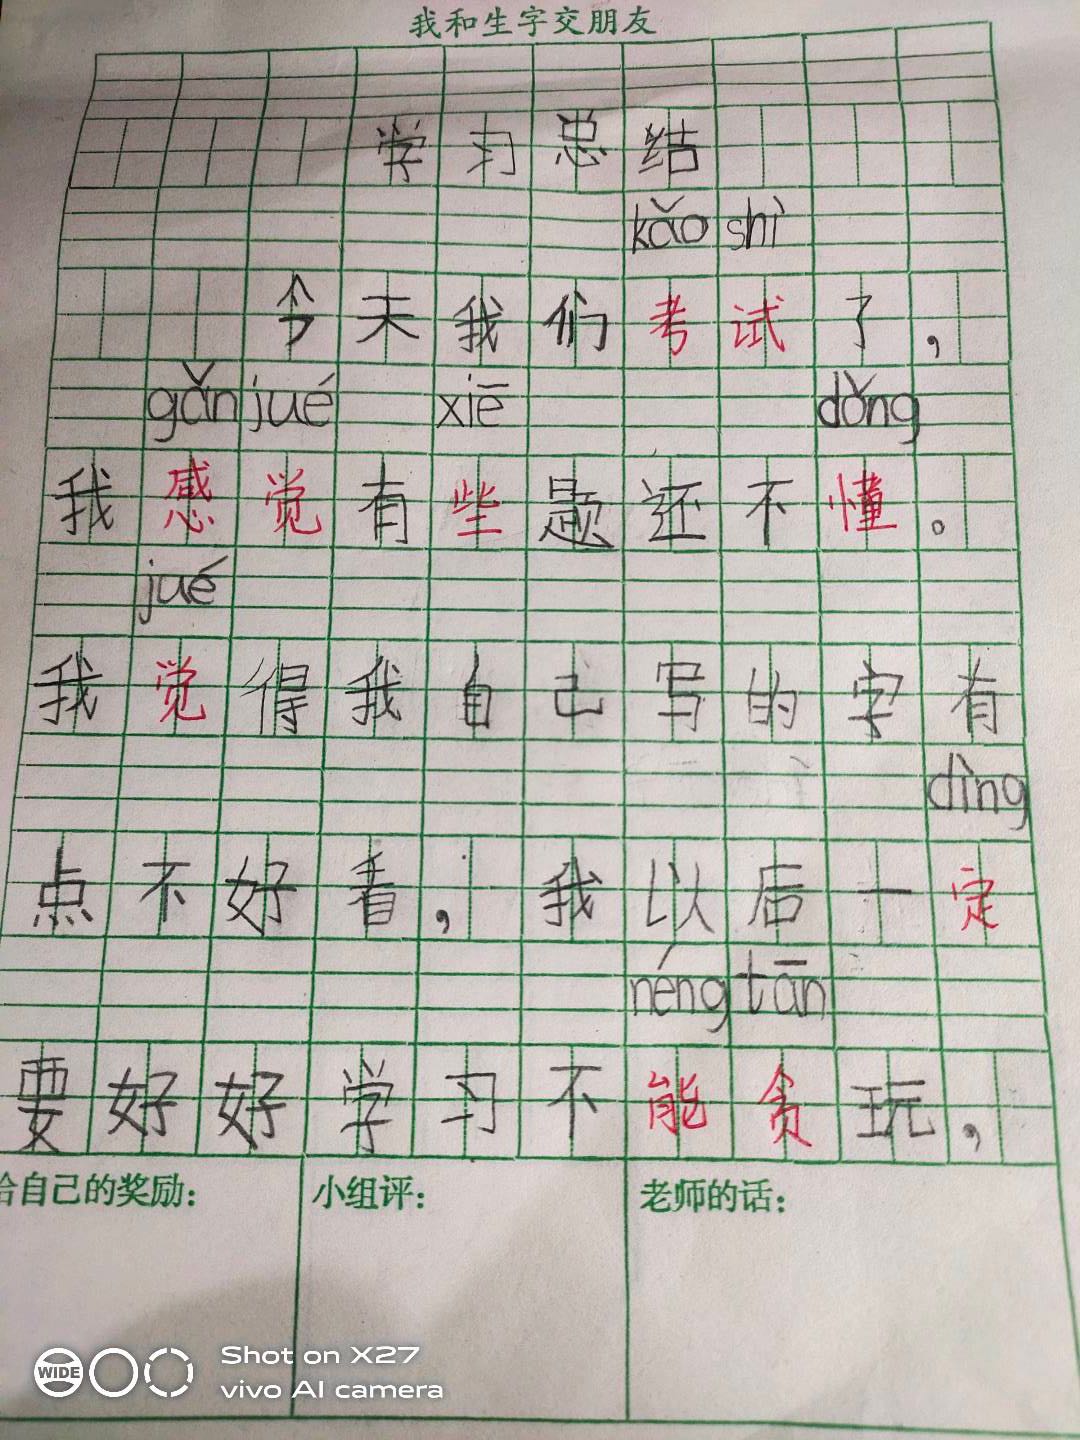 我和生字交朋友
学习总结
kǎo shì
今天我们考试了，
gǎn jué xiē dǒng
我感觉有些题还不懂。
jué
我觉得我自己写的字有
dìng
点不好看，我以后一定
néng tān
要好好学习不能贪玩，
给自己的奖励：
小组评：
老师的话：
WIDE
Shot on X27
vivo AI camera